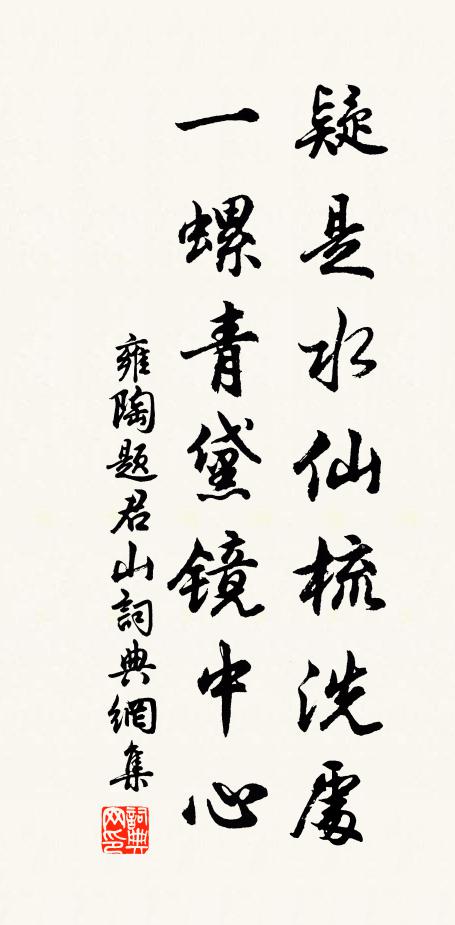 疑是水仙梳洗處
一螺青黛鏡中心
雍陶題君山詞典網集
詞典网印